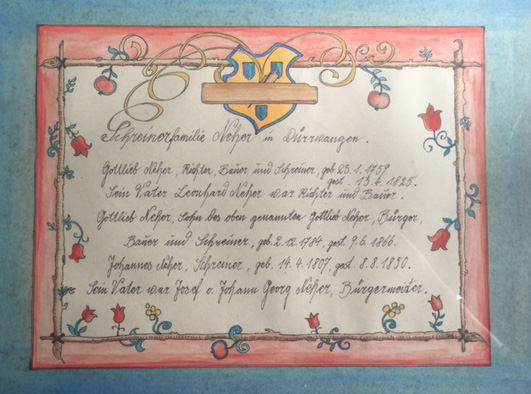 Schreinerfamilie Neher in Dürrwangen.
Gottlieb Neher, Richter, Bauer und Schreiner, geb. 25.1.1759
gest. 13.4.1825.
Sein Vater Leonhard Neher war Richter und Bauer.
Gottlieb Neher, Sohn des oben genannten Gottlieb Neher, Bürger,
Bauer und Schreiner, geb. 2.12.1784, gest. 9.6.1866.
Johannes Neher, Schreiner, geb. 14.4.1807, gest. 8.8.1850.
Sein Vater war Josef u. Johann Georg Neher, Bürgermeister.